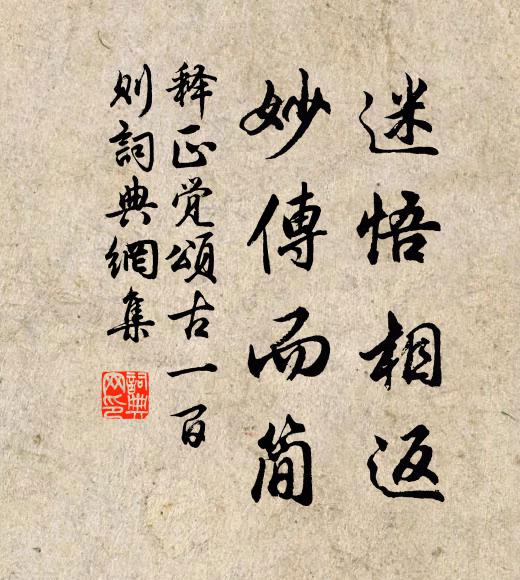 迷悟相返
妙傳而簡
释正觉頌古一百
则詞典網集
詞典
网印